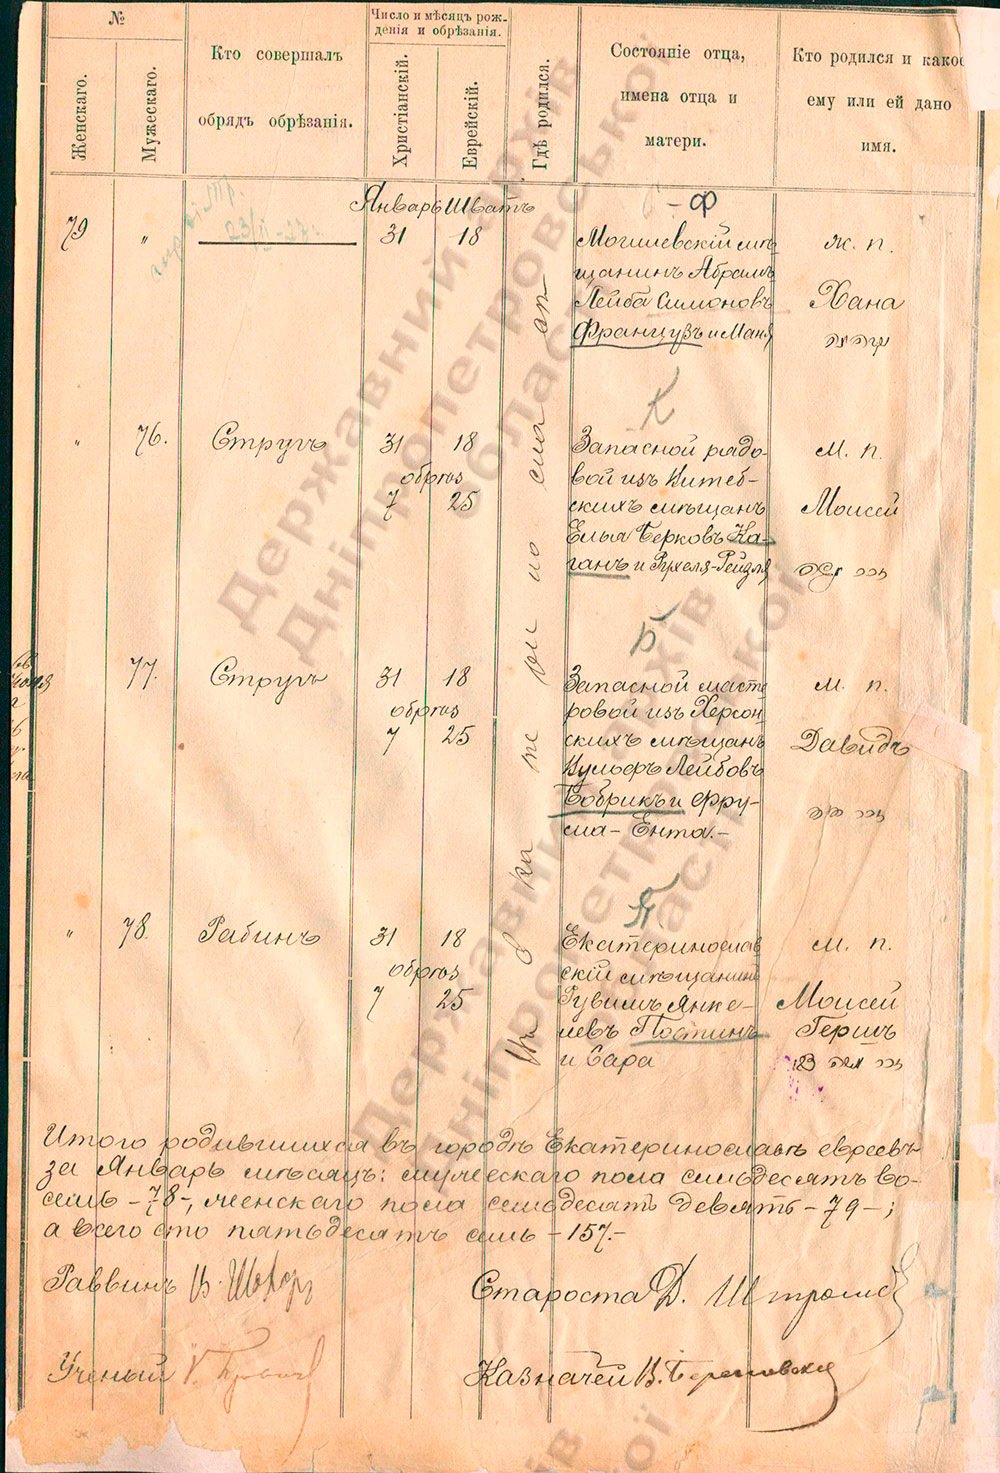 №
Женскаго.
Мужескаго.
Кто совершалъ
обрядъ обрѣзанія.
Число и мѣсяцъ рож-
денія и обрѣзанія.
Христіанскій.
Еврейскій.
Гдѣ родился.
Состояніе отца,
имена отца и
матери.
Кто родился и какое
ему или ей дано
имя.
Январь Шватъ
Ф
79 " 31 18
Могилевскій мѣ-
щанинъ Абрамъ
Лейба Симоновъ
Французъ и Маня
ж. п.
Хана
К
" 76. Стругъ 31 18
обрѣз
7 25
Запасной рядо-
вой изъ Витеб-
скихъ мѣщанъ
Елья Берковъ Ка-
ганъ и Рухеля-Рейзля
м. п.
Моисей
Б
77. Стругъ 31 18
обрѣз
7 25
Запасной масте
ровой изъ Херсон
скихъ мѣщанъ
Вульфъ Лейбовъ
Бобрикъ и Фру-
ма-Ента.-
м. п.
Давидъ
П.
" 78. Рабинъ 31 18
обрѣз
7 25
Екатеринослав
скій мѣщанинъ
Рувимъ Янке-
левъ Постинъ
и Сара
м. п.
Моисей
Гершъ
Итого родившихся въ городѣ Екатеринославѣ евреевъ
за Январь мѣсяцъ: мужескаго пола семьдесятъ во-
семь -78-, женскаго пола семьдесятъ девять -79-;
а всего сто пятьдесятъ семь -157.-
Раввинъ
Староста Д.
Ученый
Казначей В.
Державний архів
Дніпропетровської
області
Державний архів
Дніпропетровської
області